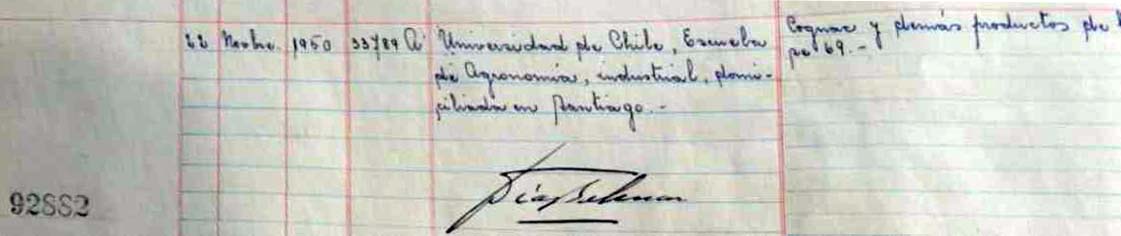 22 Novbre. 1950 33789 A Universidad de Chile, Escuela
de Agronomía, industrial, domi-
ciliada en Santiago.-
Cognac y demás productos de l
se 69.-
92882